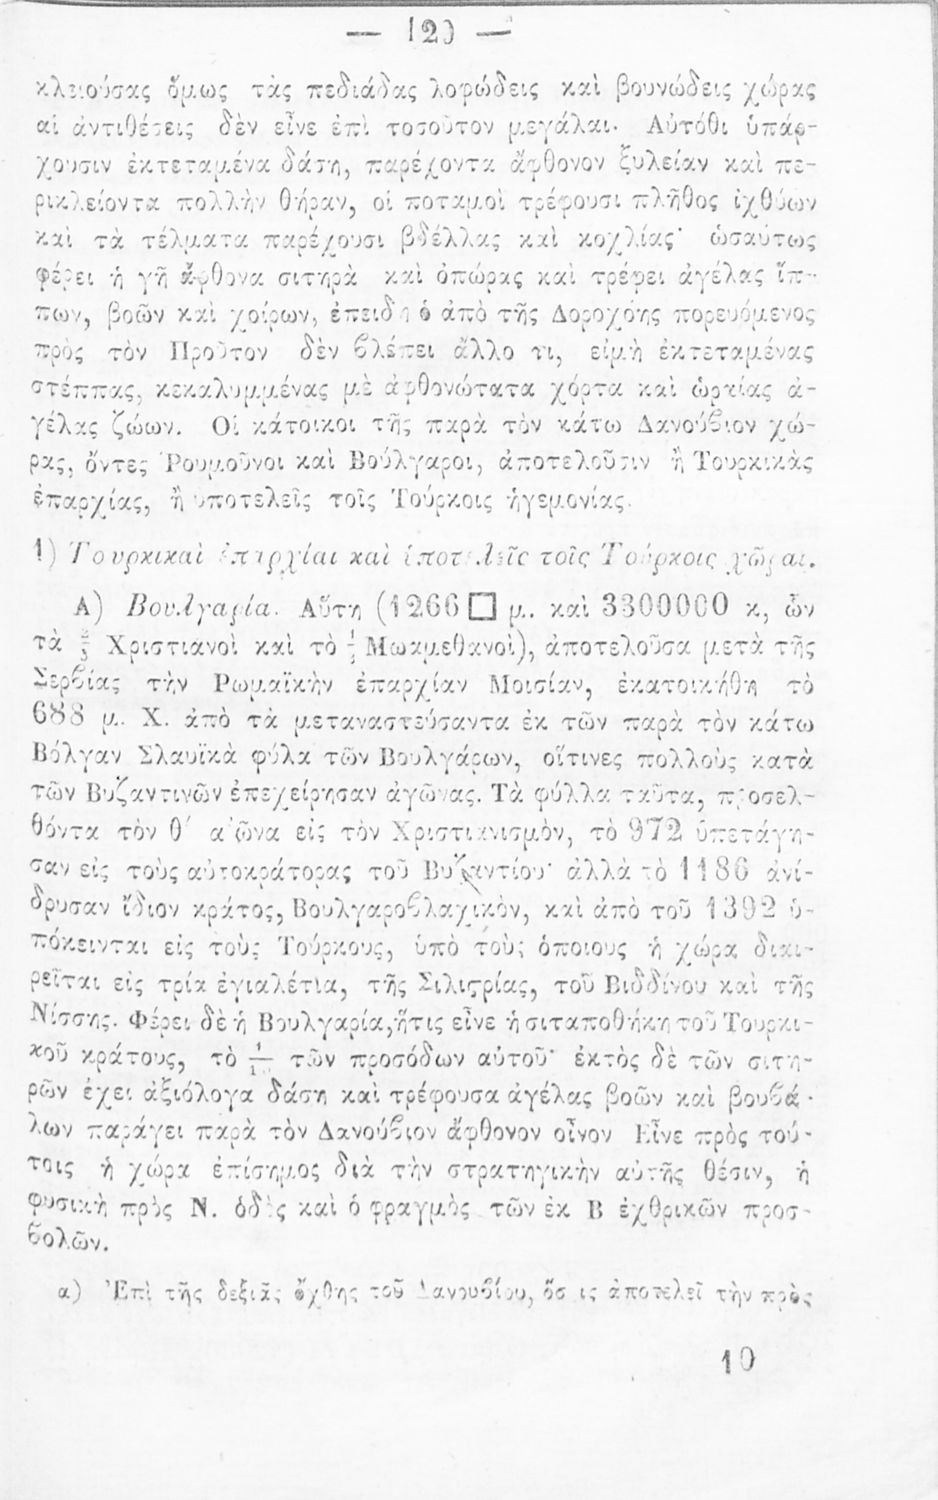 — 120 —
κλειούσας ὅμως τὰς πεδιάδας λοφώδεις καὶ βουνώδεις χώρας
αἱ ἀντιθέσεις δὲν εἶνε ἐπὶ τοσοῦτον μεγάλαι· Αὐτόθι ὑπάρ-
χουσιν ἐκτεταμένα δάση, παρέχοντα ἄφθονον ξυλείαν καὶ πε-
ρικλείοντα πολλὴν θήραν, οἱ ποταμοὶ τρέφουσι πλῆθος ἰχθύων
καὶ τὰ τέλματα παρέχουσι βδέλλας καὶ κοχλίας· ὡσαύτως
φέρει ἡ γῆ ἄφθονα σιτηρὰ καὶ ὀπώρας καὶ τρέφει ἀγέλας ἵπ-
πων, βοῶν καὶ χοίρων, ἐπειδὴ ὁ ἀπὸ τῆς Δοροχόης πορευόμενος
πρὸς τὸν Προῦτον δὲν βλέπει ἄλλο τι, εἰμὴ ἐκτεταμένας
στέππας, κεκαλυμμένας μὲ ἀφθονώτατα χόρτα καὶ ὡραίας ἀ-
γέλας ζώων. Οἱ κάτοικοι τῆς παρὰ τὸν κάτω Δανούβιον χώ-
ρας, ὄντες Ῥουμοῦνοι καὶ Βούλγαροι, ἀποτελοῦσιν ἢ Τουρκικὰς
ἐπαρχίας, ἢ ὑποτελεῖς τοῖς Τούρκοις ἡγεμονίας.
1) Τουρκικαὶ ἐπαρχίαι καὶ ὑποτελεῖς τοῖς Τούρκοις χῶραι.
Α) Βουλγαρία. Αὕτη (1266 □ μ. καὶ 3300000 κ, ὧν
τὰ Χριστιανοὶ καὶ τὸ Μωαμεθανοὶ), ἀποτελοῦσα μετὰ τῆς
Σερβίας τὴν Ρωμαϊκὴν ἐπαρχίαν Μοισίαν, ἐκατοικήθη τὸ
688 μ. Χ. ἀπὸ τὰ μεταναστεύσαντα ἐκ τῶν παρὰ τὸν κάτω
Βόλγαν Σλαυϊκὰ φύλα τῶν Βουλγάρων, οἵτινες πολλοὺς κατὰ
τῶν Βυζαντινῶν ἐπεχείρησαν ἀγῶνας. Τὰ φύλλα ταῦτα, προσελ-
θόντα τὸν θ′ αἰῶνα εἰς τὸν Χριστιανισμὸν, τὸ 972 ὑπετάγη-
σαν εἰς τοὺς αὐτοκράτορας τοῦ Βυζαντίου· ἀλλὰ τὸ 1186 ἀνί-
δρυσαν ἴδιον κράτος, Βουλγαροβλαχικὸν, καὶ ἀπὸ τοῦ 1392 ὑ-
πόκεινται εἰς τοὺς Τούρκους, ὑπὸ τοὺς ὁποιους ἡ χώρα διαι-
ρεῖται εἰς τρία ἐγιαλέτια, τῆς Σιλιστρίας, τοῦ Βιδδίνου καὶ τῆς
Νίσσης. Φέρει δὲ ἡ Βουλγαρία, ἥτις εἶνε ἡ σιταποθήκη τοῦ Τουρκι-
κοῦ κράτους, τὸ τῶν προσόδων αὐτοῦ· ἐκτὸς δὲ τῶν σιτη-
ρῶν ἔχει ἀξιόλογα δάση καὶ τρέφουσα ἀγέλας βοῶν καὶ βουβά-
λων παράγει παρὰ τὸν Δανούβιον ἄφθονον οἶνον Εἶνε πρὸς τού-
τοις ἡ χώρα ἐπίσημος διὰ τὴν στρατηγικὴν αὐτῆς θέσιν, ἡ
φυσικὴ πρὸς Ν. ὁδὸς καὶ ὁ φραγμὸς τῶν ἐκ Β ἐχθρικῶν προσ-
βολῶν.
α) Ἐπὶ τῆς δεξιᾶς ὄχθης τοῦ Δανουβίου, ὅστις ἀποτελεῖ τὴν πρὸς
10